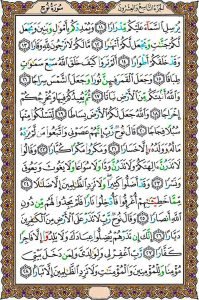 الجزء التاسع والعشرون سورة نوح
يُرْسِلِ السَّمَاءَ عَلَيْكُم مِّدْرَارًا ١١ وَيُمْدِدْكُم بِأَمْوَالٍ وَبَنِينَ وَيَجْعَل
لَّكُمْ جَنَّاتٍ وَيَجْعَل لَّكُمْ أَنْهَارًا ١٢ مَّا لَكُمْ لَا تَرْجُونَ لِلَّهِ وَقَارًا ١٣
وَقَدْ خَلَقَكُمْ أَطْوَارًا ١٤ أَلَمْ تَرَوْا كَيْفَ خَلَقَ اللَّهُ سَبْعَ سَمَاوَاتٍ
طِبَاقًا ١٥ وَجَعَلَ الْقَمَرَ فِيهِنَّ نُورًا وَجَعَلَ الشَّمْسَ سِرَاجًا ١٦
وَاللَّهُ أَنبَتَكُم مِّنَ الْأَرْضِ نَبَاتًا ١٧ ثُمَّ يُعِيدُكُمْ فِيهَا وَيُخْرِجُكُمْ
إِخْرَاجًا ١٨ وَاللَّهُ جَعَلَ لَكُمُ الْأَرْضَ بِسَاطًا ١٩ لِّتَسْلُكُوا مِنْهَا
سُبُلًا فِجَاجًا ٢٠ قَالَ نُوحٌ رَّبِّ إِنَّهُمْ عَصَوْنِي وَاتَّبَعُوا مَن لَّمْ يَزِدْهُ
مَالُهُ وَوَلَدُهُ إِلَّا خَسَارًا ٢١ وَمَكَرُوا مَكْرًا كُبَّارًا ٢٢ وَقَالُوا
لَا تَذَرُنَّ آلِهَتَكُمْ وَلَا تَذَرُنَّ وَدًّا وَلَا سُوَاعًا وَلَا يَغُوثَ وَيَعُوقَ
وَنَسْرًا ٢٣ وَقَدْ أَضَلُّوا كَثِيرًا وَلَا تَزِدِ الظَّالِمِينَ إِلَّا ضَلَالًا ٢٤
مِّمَّا خَطِيئَاتِهِمْ أُغْرِقُوا فَأُدْخِلُوا نَارًا فَلَمْ يَجِدُوا لَهُم مِّن دُونِ
اللَّهِ أَنصَارًا ٢٥ وَقَالَ نُوحٌ رَّبِّ لَا تَذَرْ عَلَى الْأَرْضِ مِنَ الْكَافِرِينَ
دَيَّارًا ٢٦ إِنَّكَ إِن تَذَرْهُمْ يُضِلُّوا عِبَادَكَ وَلَا يَلِدُوا إِلَّا فَاجِرًا
كَفَّارًا ٢٧ رَّبِّ اغْفِرْ لِي وَلِوَالِدَيَّ وَلِمَن دَخَلَ بَيْتِيَ
مُؤْمِنًا وَلِلْمُؤْمِنِينَ وَالْمُؤْمِنَاتِ وَلَا تَزِدِ الظَّالِمِينَ إِلَّا تَبَارًا ٢٨